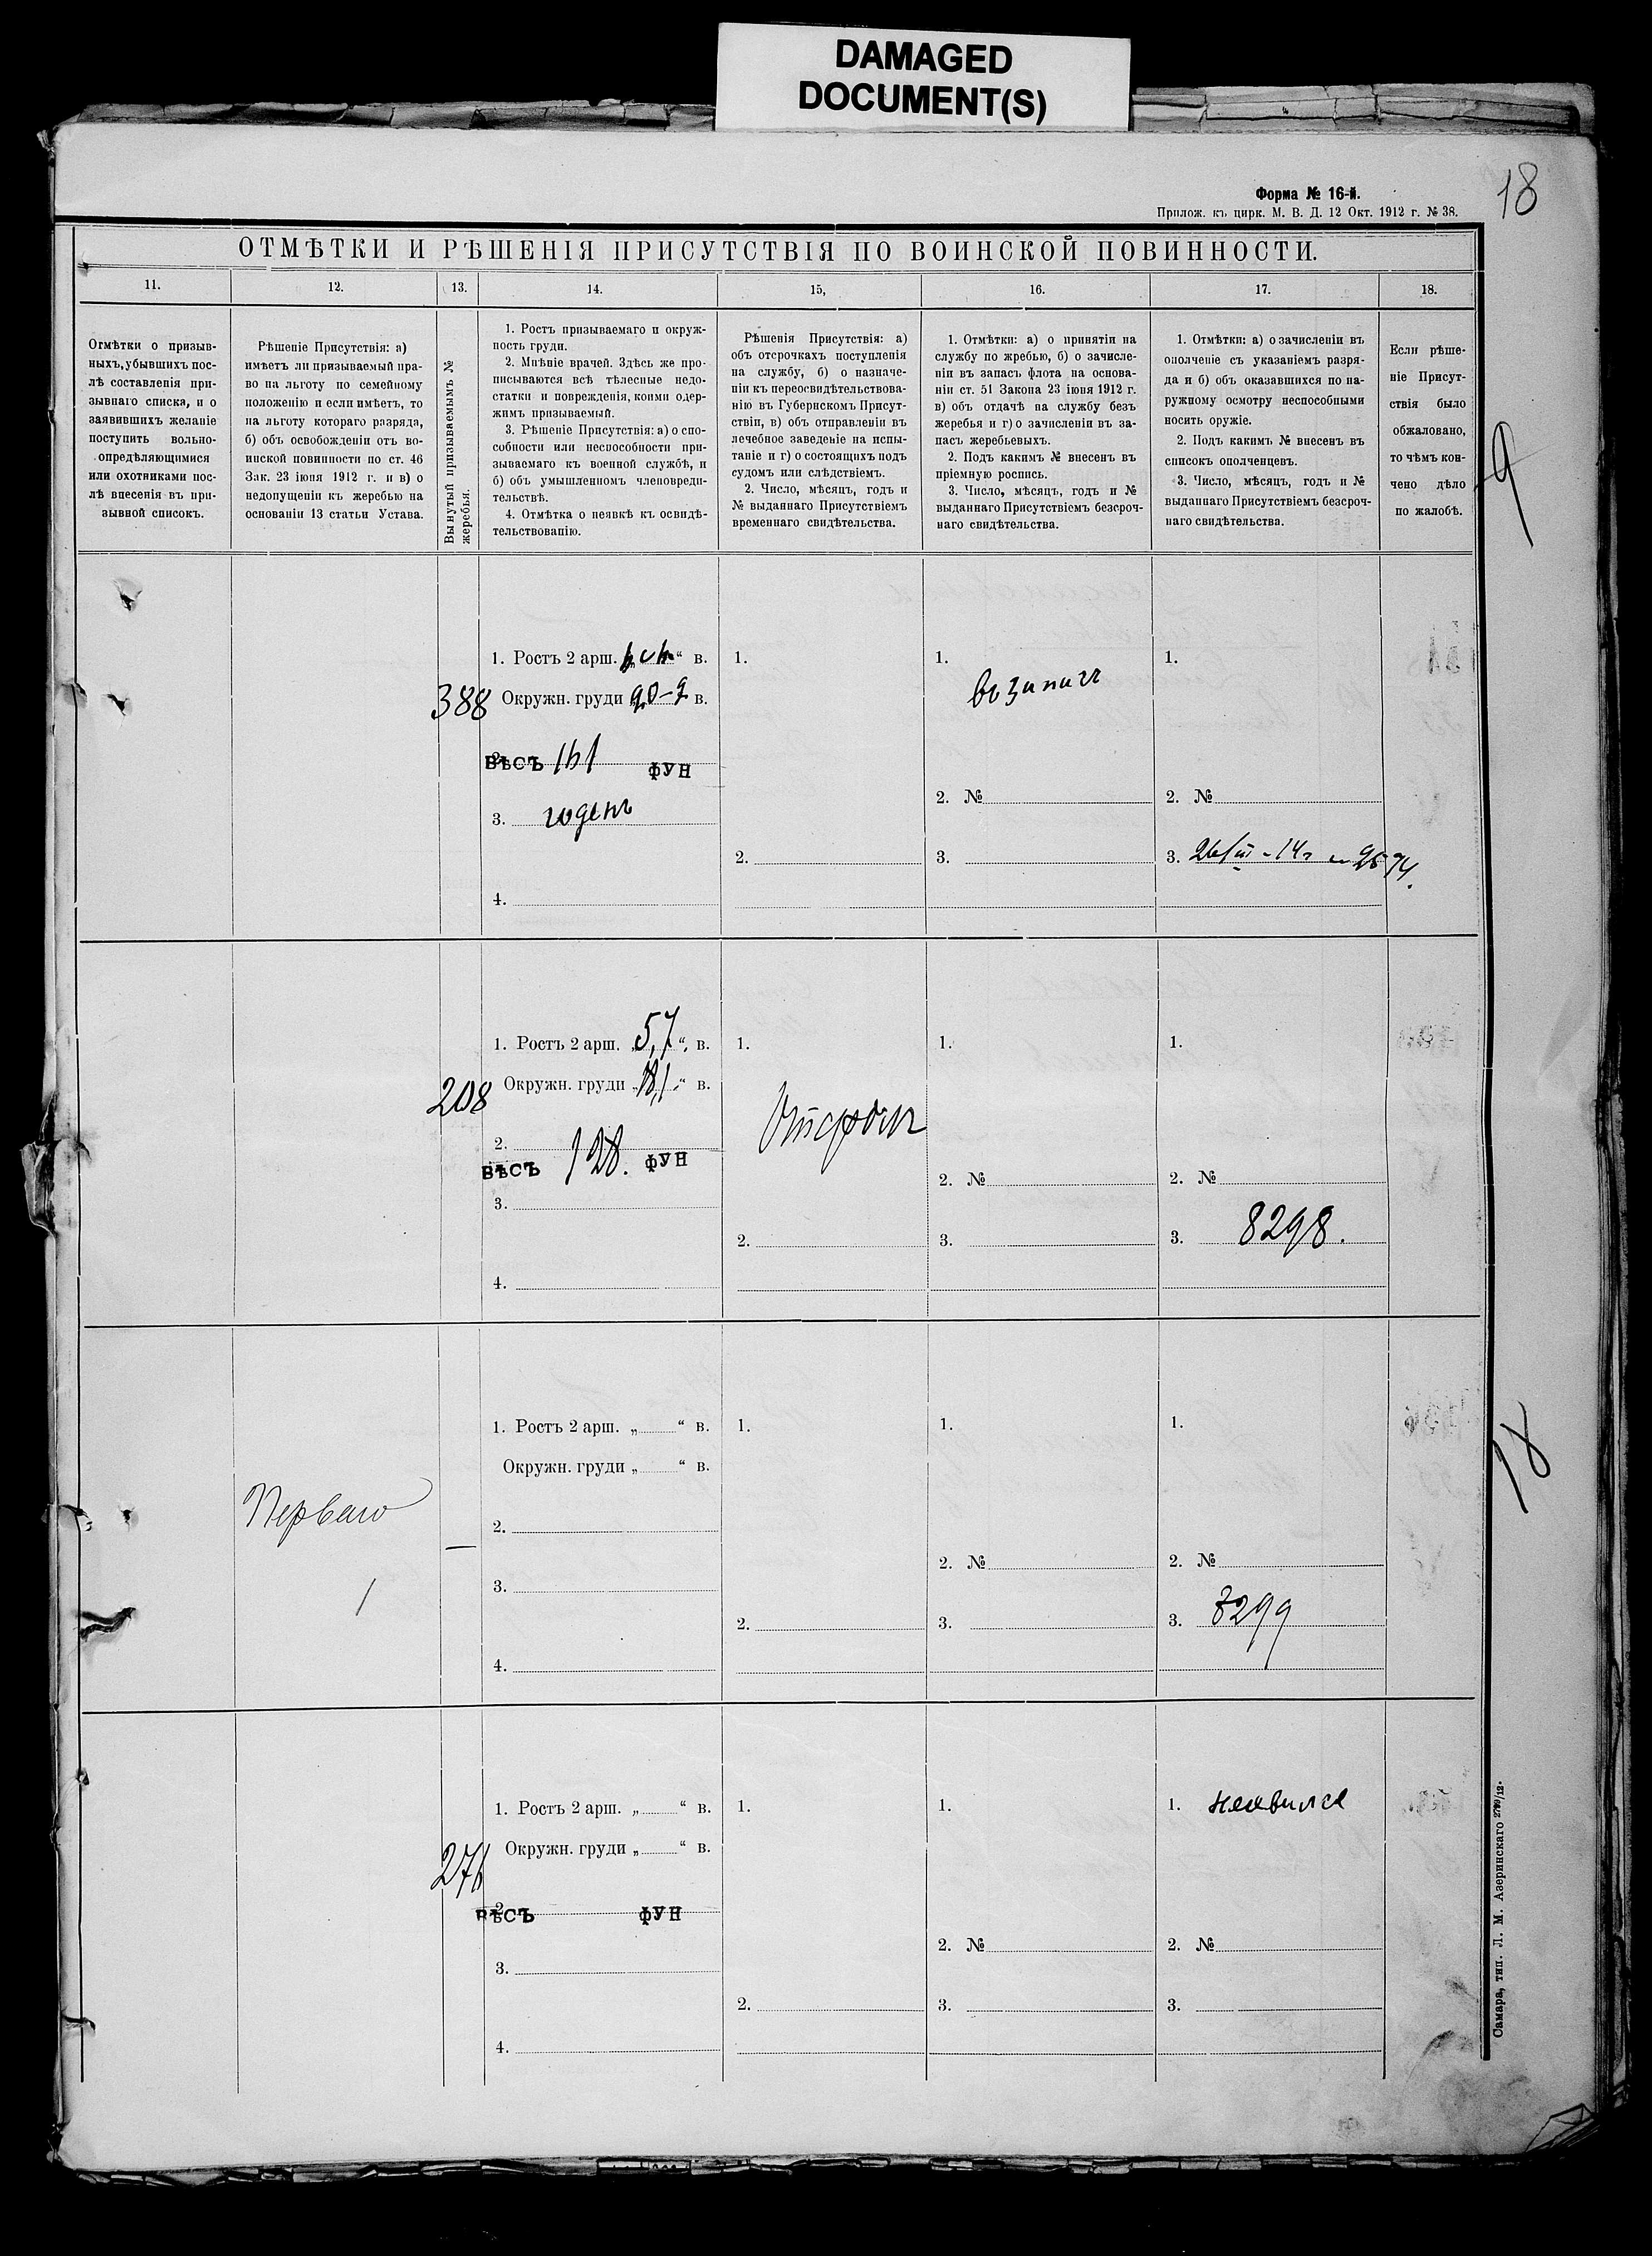 DAMAGED
DOCUMENT(S)
18
Форма № 16-й.
Прилож. къ цирк. М. В. Д. 12 Окт. 1912 г. № 38.
ОТМѢТКИ И РѢШЕНІЯ ПРИСУТСТВІЯ ПО ВОИНСКОЙ ПОВИННОСТИ.
11.
12.
13.
14.
15,
16.
17.
18.
Отмѣтки о призыв-
ныхъ, убывшихъ пос-
лѣ составленія при-
зывнаго списка, и о
заявившихъ желаніе
поступить вольно-
опредѣляющимися
или охотниками пос-
лѣ внесенія въ при-
зывной списокъ.
Рѣшеніе Присутствія: а)
имѣетъ ли призываемый пра-
во на льготу по семейному
положенію и если имѣетъ, то
на льготу котораго разряда,
б) объ освобожденіи отъ во-
инской повинности по ст. 46
Зак. 23 іюня 1912 г. и в) о
недопущеніи къ жеребью на
основаніи 13 статьи Устава.
Вынутый призываемымъ №
жеребья.
1. Ростъ призываемаго и окруж-
ность груди.
2. Мнѣніе врачей. Здѣсь же про-
писываются всѣ тѣлесные недо-
статки и поврежденія, коими одер-
жимъ призываемый.
3. Рѣшеніе Присутствія: а) о спо-
собности или неспособности при-
зываемаго къ военной службѣ, и
б) объ умышленномъ членовреди-
тельствѣ.
4. Отмѣтка о неявкѣ къ освидѣ-
тельствованію.
Рѣшенія Присутствія: а)
объ отсрочкахъ поступленія
на службу, б) о назначе-
ніи къ переосвидѣтельствова-
нію въ Губернскомъ Присут-
ствіи, в) объ отправленіи въ
лечебное заведеніе на испы-
таніе и г) о состоящихъ подъ
судомъ или слѣдствіемъ.
2. Число, мѣсяцъ, годъ и
№ выданнаго Присутствіемъ
временнаго свидѣтельства.
1. Отмѣтки: а) о принятіи на
службу по жребью, б) о зачисле-
ніи въ запасъ флота на основа-
ніи ст. 51 Закона 23 іюня 1912 г.
в) объ отдачѣ на службу безъ
жеребья и г) о зачисленіи въ за-
пасъ жеребьевыхъ.
2. Подъ какимъ № внесенъ въ
пріемную роспись.
3. Число, мѣсяцъ, годъ и №
выданнаго Присутствіемъ безсроч-
наго свидѣтельства.
1. Отмѣтки: а) о зачисленіи въ
ополченіе съ указаніемъ разря-
да и б) объ оказавшихся по на-
ружному осмотру неспособными
носить оружіе.
2. Подъ какимъ № внесенъ въ
списокъ ополченцевъ.
3. Число, мѣсяцъ, годъ и №
выданнаго Присутствіемъ безсроч-
наго свидѣтельства.
Если рѣше-
ніе Присут-
ствія было
обжаловано,
то чѣмъ кон-
чено дѣло
по жалобѣ.
9
388
1. Ростъ 2 арш. „ “ в.
Окружн. груди „ в.
2.
ВѢСЪ 161 ФУН
3. годенъ
4.
1.
2.
1.
2. №
3.
1.
2. №
3. 26/III-14г
208
1. Ростъ 2 арш. „5,7“ в.
Окружн. груди „18,1“ в.
2.
ВѢСЪ 128. ФУН
3.
4.
1.
2.
1.
2. №
3.
1.
2. №
3. 8298.
Перваго
1
—
1. Ростъ 2 арш. „ “ в.
Окружн. груди „ “ в.
2.
3.
4.
1.
2.
1.
2. №
3.
1.
2. №
3. 8299
18
276
1. Ростъ 2 арш. „ “ в.
Окружн. груди „ “ в.
2.
ВѢСЪ ФУН
3.
4.
1.
2.
1.
2. №
3.
1. неявился
2. №
3.
Самара, тип. Л. М. Азеринскаго